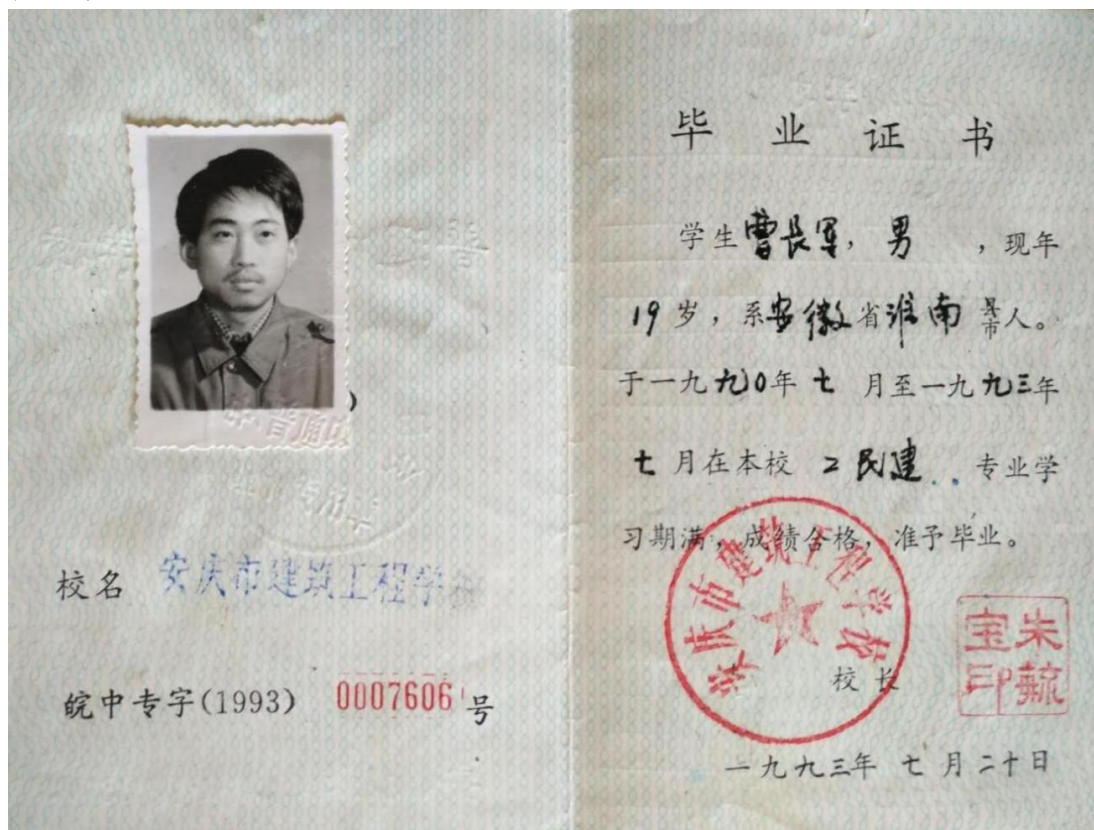 校名 安庆市建筑工程学校
皖中专字(1993) 0007606 号
毕业证书
学生曹長军，男 ，现年
19岁，系安徽省淮南县市人。
于一九九0年七月至一九九三年
七月在本校 工民建 专业学
习期满，成绩合格，准予毕业。
安庆市建筑工程学校
校长
朱毓宝印
一九九三年七月二十日